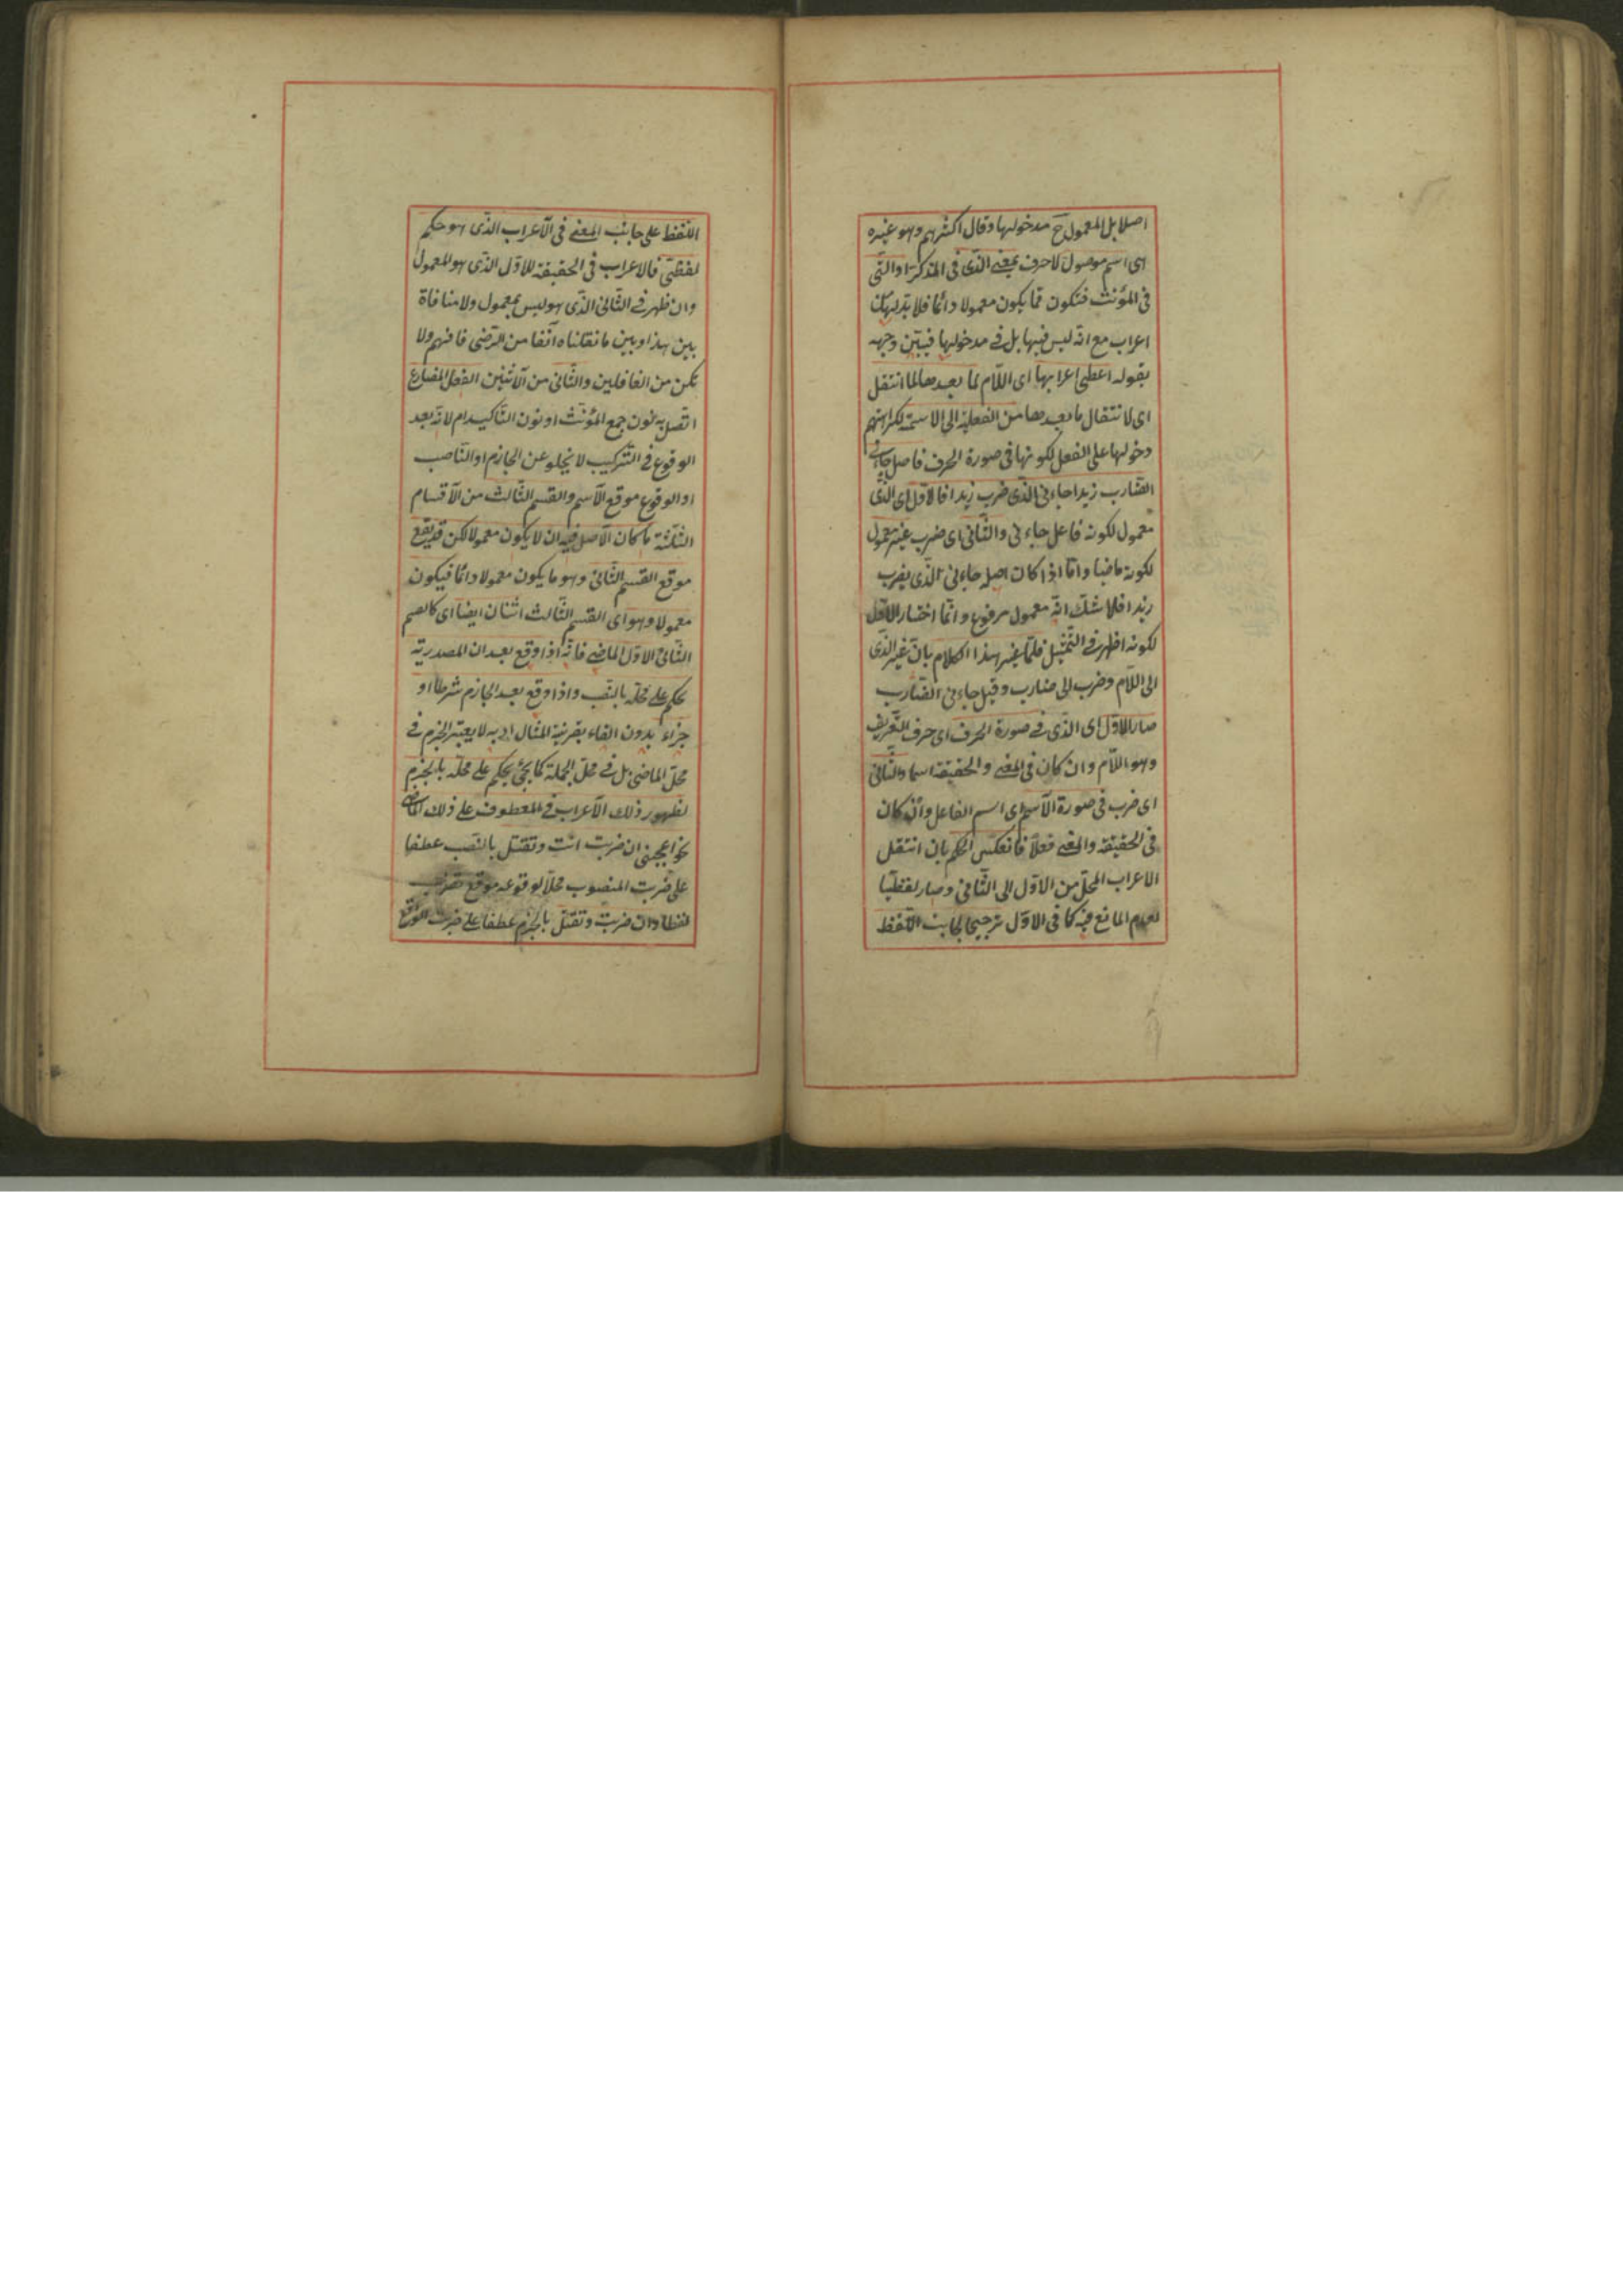 اصلا بل المعمول ح مدخولها وقال اكثرهم وهو غيره
اى اسم موصول لا حرف بمعنى الذى فى المذكر او التى
فى المؤنث فتكون مما يكون معمولا دائما فلا بد لها من
اعراب مع انه ليس فيها بل فى مدخولها فبين وجهه
بقوله اعطى اعرابها اى اللام لما بعدها لما انتقل
اى لانتقال ما بعدها من الفعلية الى الاسمية لكراهتهم
دخولها على الفعل لكونها فى صورة الحرف فاصل جاءنى
الضارب زيدا جاءنى الذى ضرب زيدا فالاول اى الذى
معمول لكونه فاعل جاءنى والثانى اى ضرب غير معمول
لكونه ماضيا واما اذا كان اصله جاءنى الذى يضرب
زيدا فلا شك انه معمول مرفوع وانما اختار الاول
لكونه اظهر فى التمثيل فلما غير هذا الكلام بان غير الذى
الى اللام وضرب الى ضارب وقيل جاءنى الضارب
صار الاول اى الذى فى صورة الحرف اى حرف التعريف
وهو اللام وان كان فى المعنى والحقيقة اسما والثانى
اى ضرب فى صورة الاسم اى اسم الفاعل وان كان
فى الحقيقة والمعنى فعلا فانعكس الحكم بان انتقل
الاعراب المحلى من الاول الى الثانى وصار لفظيا
لعدم المانع فيه كما فى الاول ترجيحا لجانب اللفظ
اللفظ على جانب المعنى فى الاعراب الذى هو حكم
لفظى فالاعراب فى الحقيقة للاول الذى هو المعمول
وان ظهر فى الثانى الذى هو ليس بمعمول ولا منافاة
بين هذا وبين ما نقلناه آنفا من الرضى فافهم ولا
تكن من الغافلين والثانى من الاثنين الفعل المضارع
اتصل به نون جمع المؤنث او نون التاكيد ام لا لانه بعد
الوقوع فى التركيب لا يخلو عن الجازم او الناصب
او الوقوع موقع الاسم والقسم الثالث من الاقسام
الثلثة ما كان الاصل فيه ان لا يكون معمولا لكن قد يقع
موقع القسم الثانى وهو ما يكون معمولا دائما فيكون
معمولا وهو اى القسم الثالث اثنان ايضا اى كالقسم
الثانى الاول الماضى فانه اذا وقع بعد ان المصدرية
يحكم على محله بالنصب واذا وقع بعد الجازم شرطا او
جزاء بدون الفاء بقرينة المثال اذ به لا يعتبر الجزم فى
محل الماضى بل فى محل الجملة كما يجئ يحكم على محله بالجزم
لظهور ذلك الاعراب فى المعطوف على ذلك الماضى
نحو اعجبنى ان ضربت انت وتقتل بالنصب عطفا
على ضربت المنصوب محلا لوقوعه موقع تضرب
لفظا وان ضربت وتقتل بالجزم عطفا على ضربت الواقع